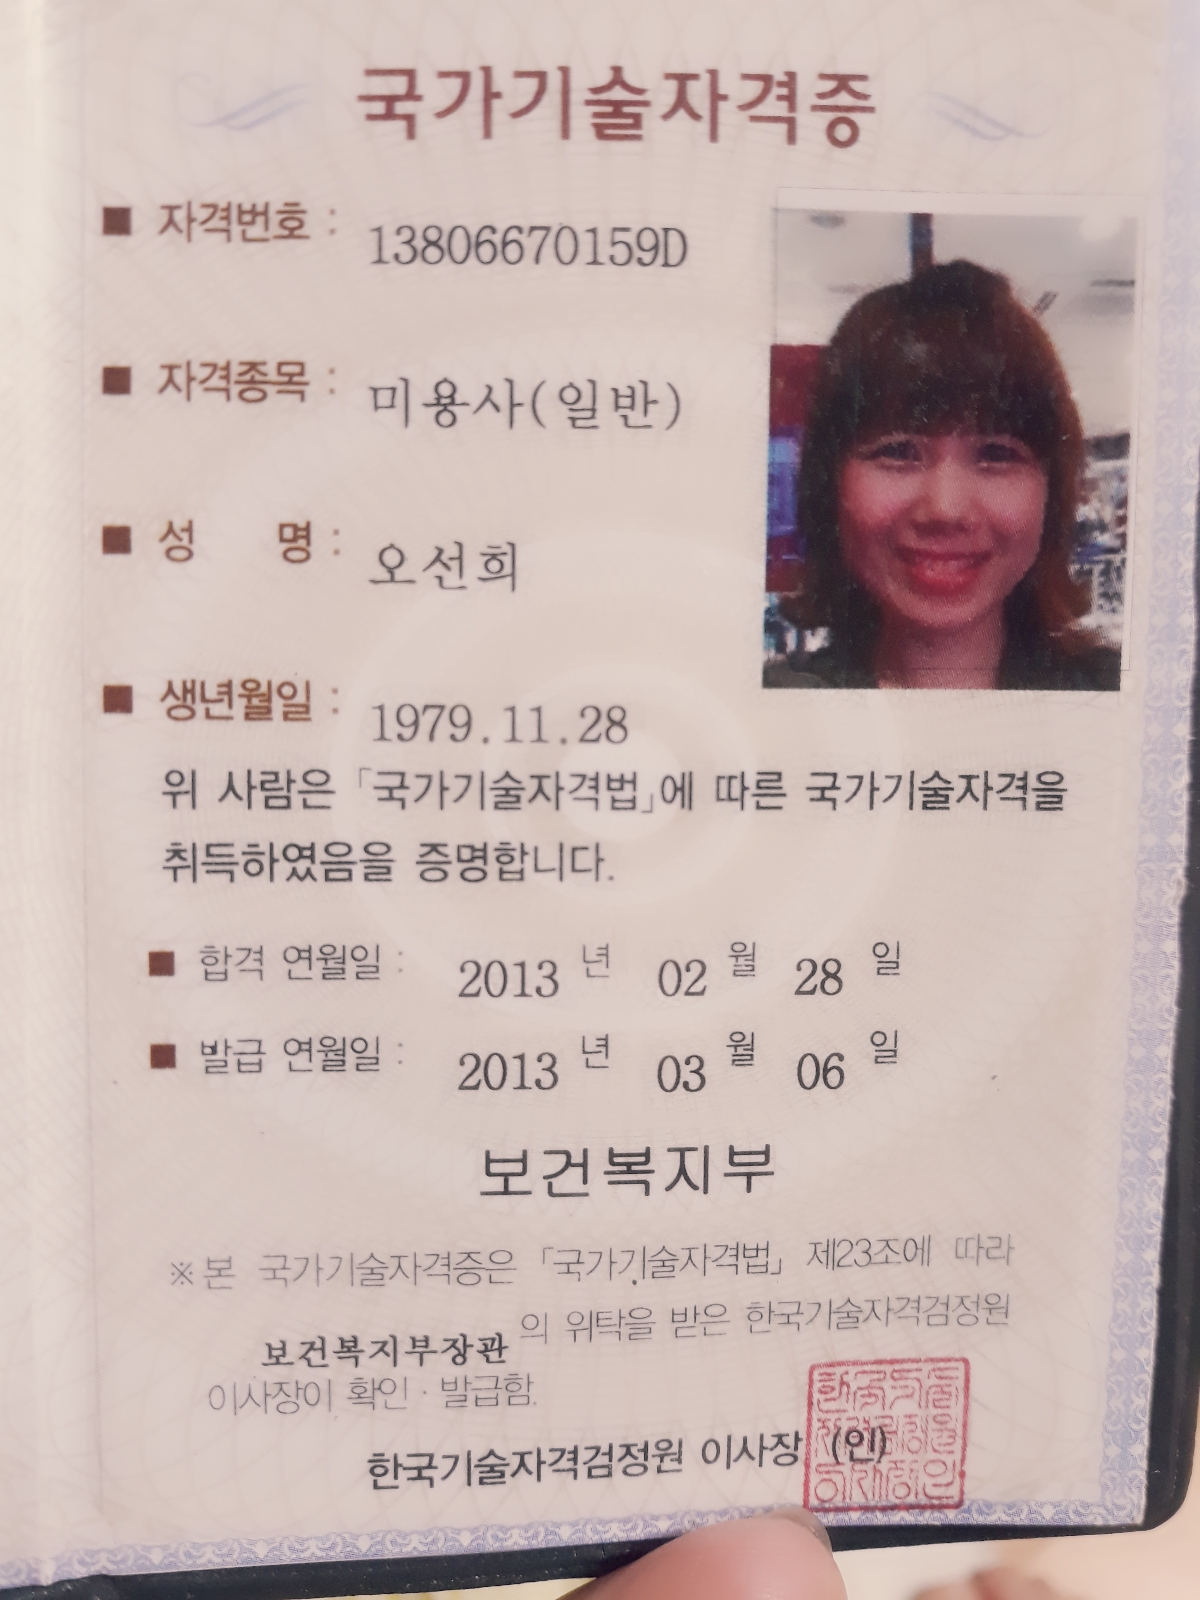 국가기술자격증
■ 자격번호 : 13806670159D
■ 자격종목 : 미용사(일반)
■ 성 명 : 오선희
■ 생년월일 : 1979.11.28
위 사람은 「국가기술자격법」에 따른 국가기술자격을
취득하였음을 증명합니다.
■ 합격 연월일 : 2013 년 02 월 28 일
■ 발급 연월일 : 2013 년 03 월 06 일
보건복지부
※본 국가기술자격증은 「국가기술자격법」 제23조에 따라
보건복지부장관 의 위탁을 받은 한국기술자격검정원
이사장이 확인·발급함.
한국기술자격검정원 이사장 (인)